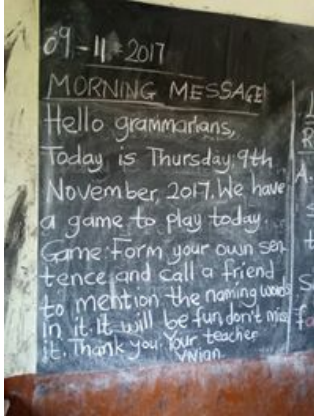 09-11-2017
MORNING MESSAGE!
Hello grammarians,
Today is Thursday, 9th
November, 2017. We have
a game to play today.
Game: Form your own sen
tence and call a friend
to mention the naming words
in it. It will be fun, don't miss
it. Thank you. Your teacher
Vivian.